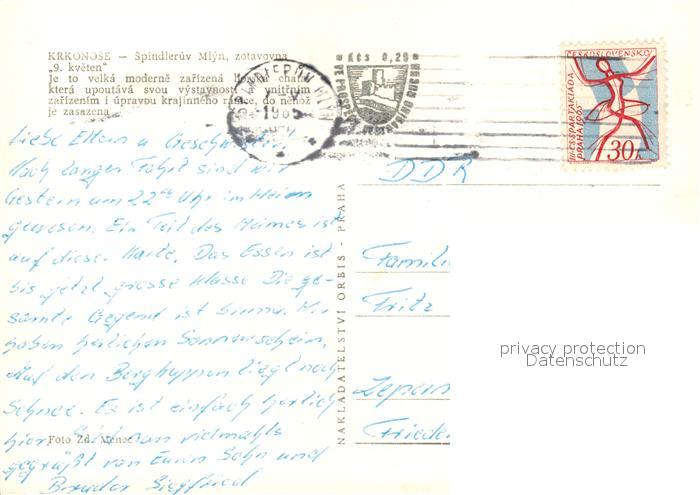 KRKONOŠE — Špindlerův Mlýn, zotavovna
„9. květen"
Je to velká moderně zařízená chata,
která upoutává svou výstavností vnitřním
zařízením i úpravou krajinného rámce, do něhož
je zasazena
Kčs 0,20
1965
ČESKOSLOVENSKO
III. CS. SPARTAKIÁDA
PRAHA 1965
30h
DDR
Liebe Eltern u Geschwister,
Nach langer Fahrt sind wir
gestern um 22 Uhr im Heim
gewesen. Ein Teil des Heimes ist
auf dieser Karte. Das Essen ist
bis jetzt grosse Klasse Die ge-
samte Gegend ist Wir
haben herlichen Sonnenschein,
Auf den Bergkuppen liegt noch
Schnee. Es ist einfach herlich
hier. Seit nun vielmahls
gegrüßt von Euren Sohn und
Bruder Siegfried
Foto Zd.
NAKLADATELSTVÍ ORBIS - PRAHA
Famili
Fritz
Zepern
Frieder
privacy protection
Datenschutz